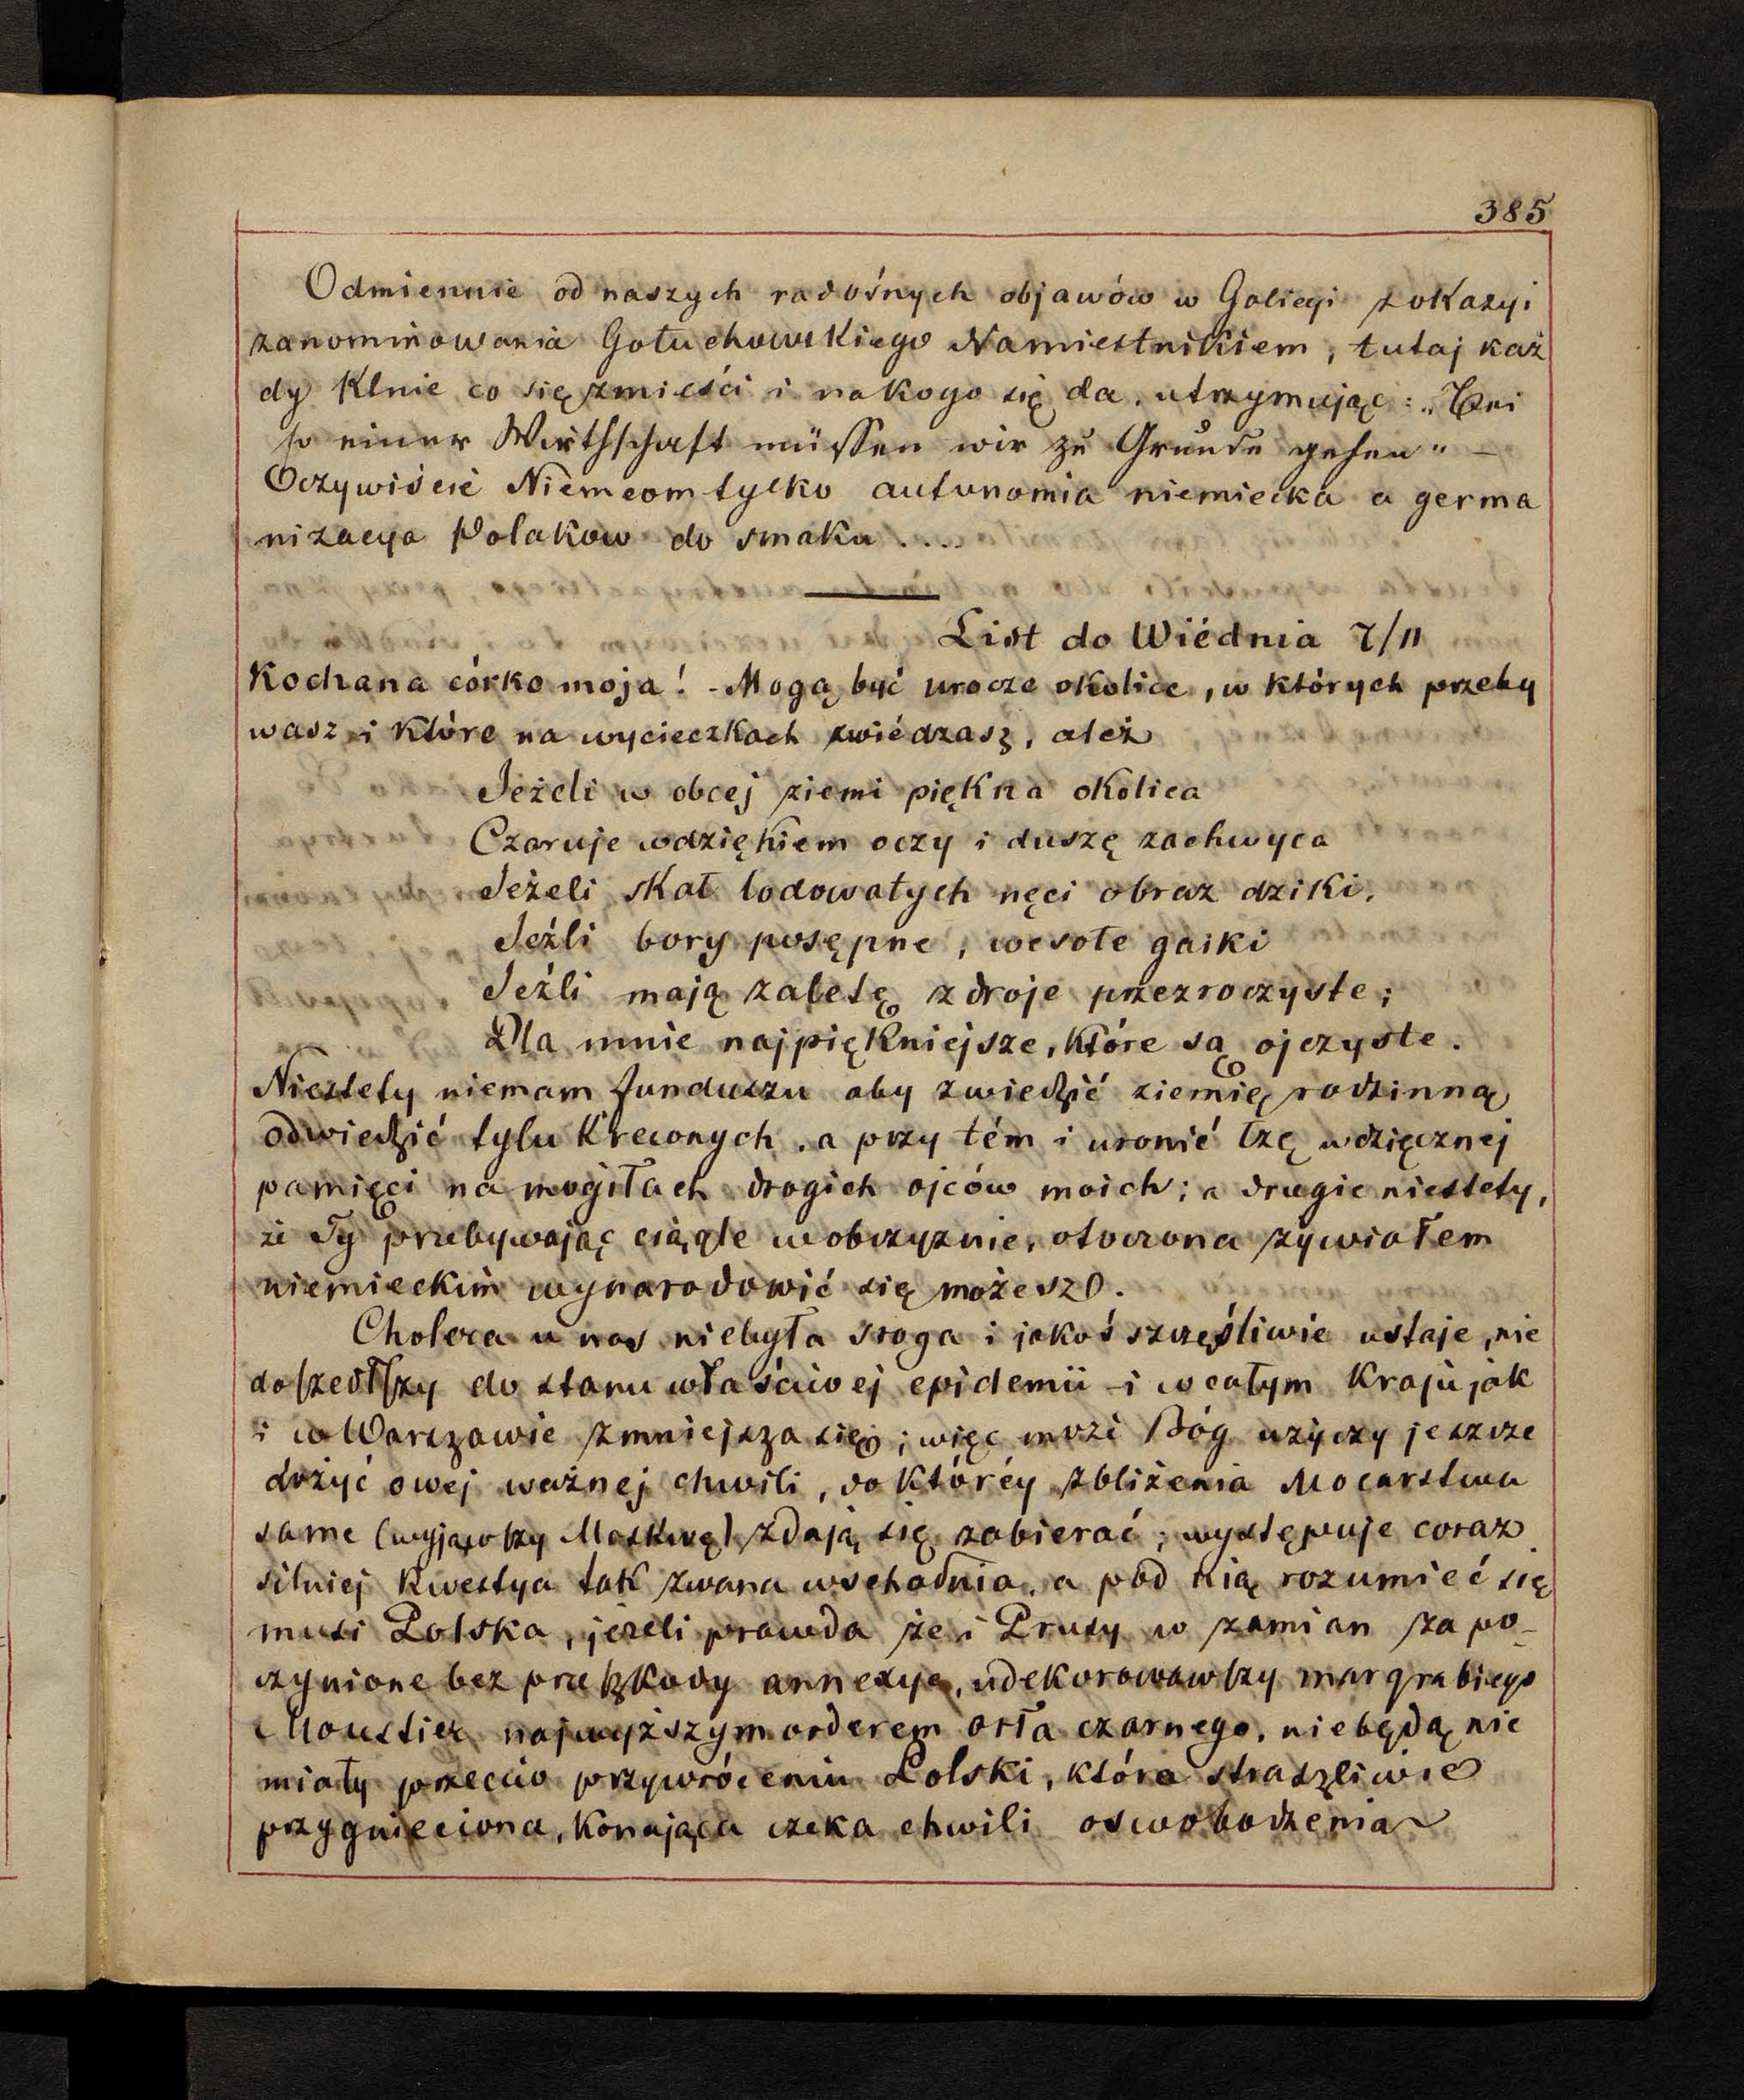 385
Odmiennie od naszych radośnych objawów w Galicyi z okazyi
zanominowania Gołuchowskiego Namiestnikiem, tutaj każ
dy klnie co się zmieści i na kogo się da, utrzymując: „Bei
so einer Wirthschaft müssen wir zu Grunde gehen" –
Oczywiście Niemcom tylko autonomia niemiecka a germa
nizacya Polakow do smaku....
List do Wiédnia 7/11
Kochana córko moja! - Mogą być urocze okolice, w których przeby
wasz i które na wycieczkach zwiédzasz, ależ
Jeżeli w obcej ziemi piękna okolica
Czaruje wdziękiem oczy i duszę zachwyca
Jeżeli skał lodowatych nęci obraz dziki,
Jeźli bory posępne, wesołe gaiki
Jeźli mają zaletę zdroje przezroczyste;
Dla mnie najpiękniejsze, które są ojczyste.
Niestety niemam funduszu aby zwiedzić ziemię rodzinną
odwiedzić tylu krewnych, a przy tém i uronić łzę wdzięcznej
pamięci na mogiłach drogich ojców moich; a drugie niestety,
że Ty przebywając ciągle w obczyznie, otoczona żywiołem
niemieckim wynarodowić się możesz.
Cholera u nas niebyła sroga i jakoś szczęśliwie ustaje, nie
doszedłszy do stanu właściwej epidemii - i w całym kraju jak
i w Warszawie zmniejsza się; więc może Bóg użyczy jeszcze
dożyć owej ważnej chwili, do któréy zbliżenia Mocarstwa
same (wyjąwszy Moskwę) zdają się zabierać; występuje coraz
silniej kwestya tak zwana wschodnia, a pod nią rozumieć się
musi Polska, jeżeli prawda że i Prusy w zamian za po-
czynione bez przeszkody annexye, udekorowawszy margrabiego
Moustier najwyższym orderem orła czarnego, niebędą nic
miały przeciw przywróceniu Polski, która straszliwie
przygnieciona, konająca czeka chwili oswobodzenia